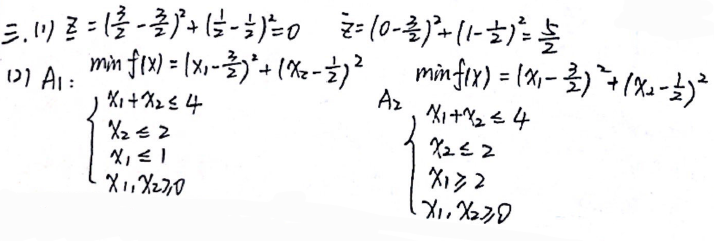 三.(1) z̲=(3/2-3/2)²+(1/2-1/2)²=0 z̄=(0-3/2)²+(1-1/2)²=5/2
(2) A₁: min f(x)=(x₁-3/2)²+(x₂-1/2)²
{ x₁+x₂≤4
x₂≤2
x₁≤1
x₁,x₂≥0
A₂ min f(x)=(x₁-3/2)²+(x₂-1/2)²
{ x₁+x₂≤4
x₂≤2
x₁≥2
x₁,x₂≥0